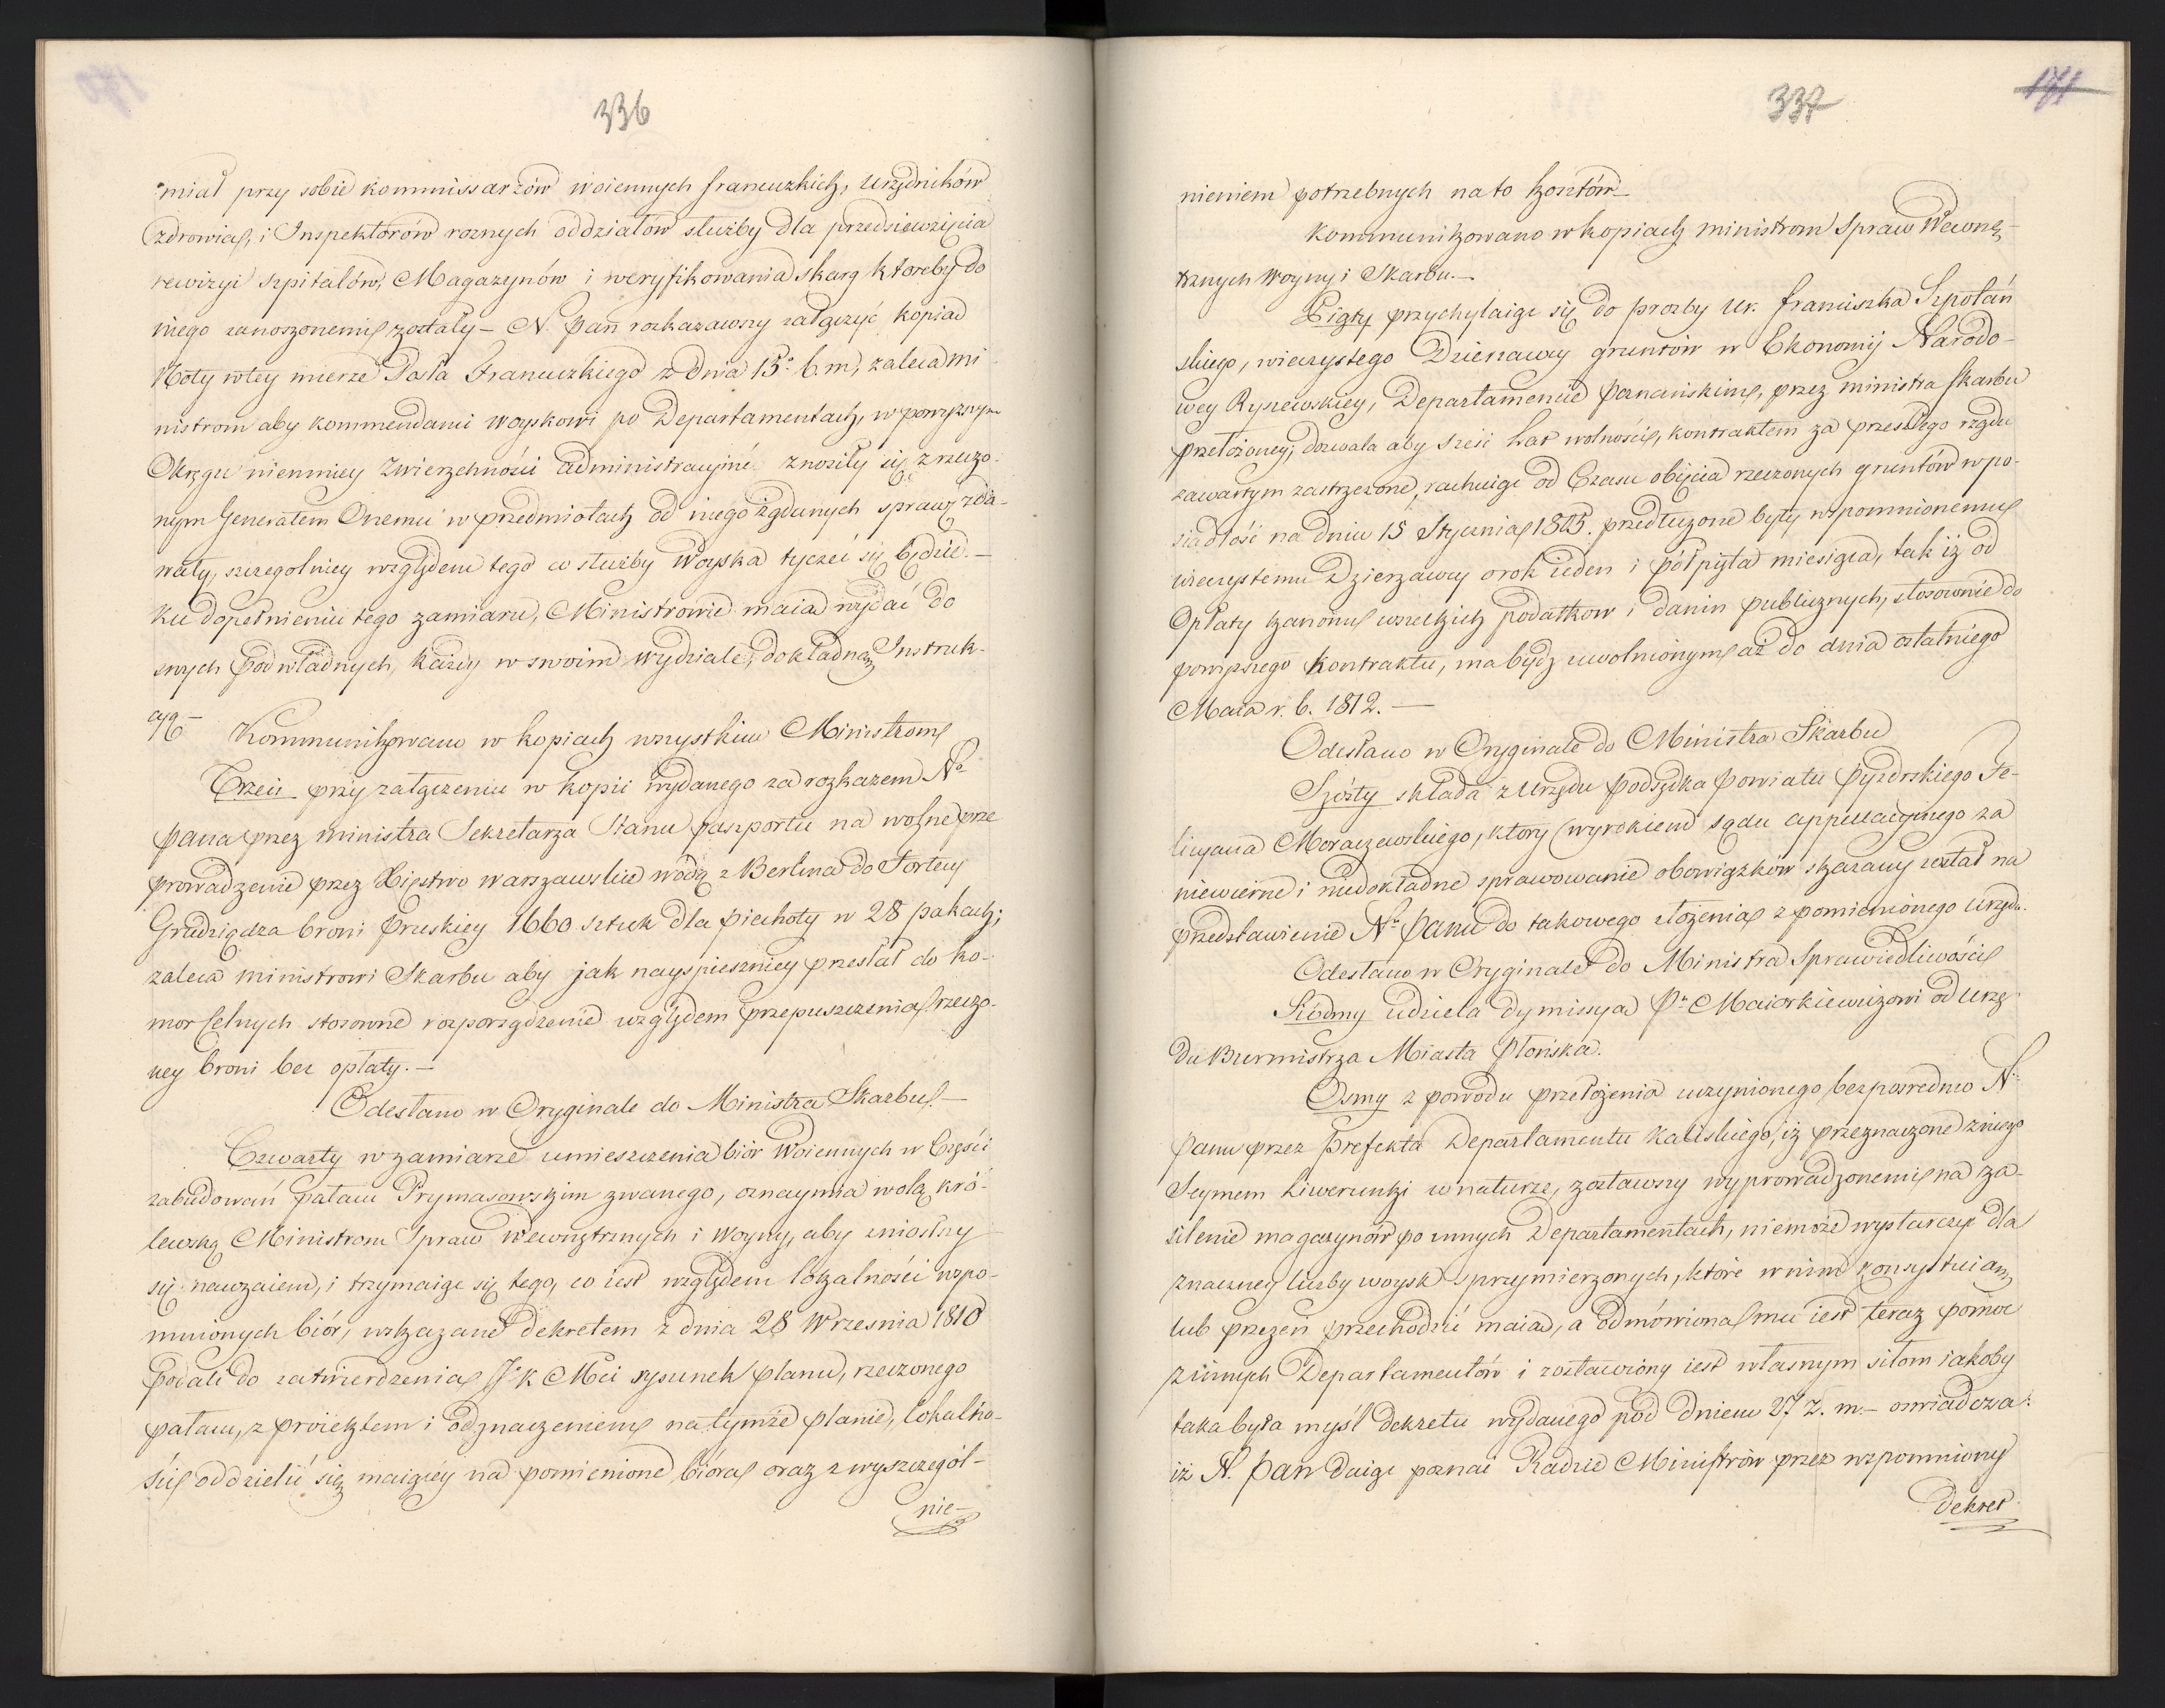 336
miał przy sobie kommissarzów woiennych francuzkich, urzędników
zdrowia, i Inspektorów roznych oddziałów służby dla przedsiewzięcia
rewizyi szpitalów, Magazynów i weryfikowania skarg ktoreby do
niego zanoszonemi zostały – N. Pan rozkazawszy załączyć kopią
Noty w tey mierze Posła Francuzkiego z dnia 15° b. m, zaleca Mi
nistrom aby kommendanci woyskowi po Departamentach, w powyzszym
Okręgu niemniey Zwierzchności administracyine znosiły się z rzeczo-
nym Generałem Onemu w przedmiotach od niego żądanych sprawę zda-
wały, szczegolniey względem tego co służby Woyska tyczeć się będzie. –
Ku dopełnieniu tego zamiaru, Ministrowie maią wydać do
swych podwładnych, każdy w swoim wydziale, dokładną Instruk-
cyą –
Kommunikowano w kopiach wszystkim Ministrom
Trzeci przy załączeniu w kopii wydanego za rozkazem No
Pana przez ministra Sekretarza Stanu paszportu na wolne prze
prowadzenie przez Xięstwo warszawskie wodą z Berlina do Fortecy
Grudziądza broni Pruskiey 1660 sztuk dla piechoty w 28 pakach;
zaleca ministrowi Skarbu aby jak nayspieszniey przesłał do ko-
mor Celnych stosowne rozporządzenie względem przepuszczenia rzeczo-
ney broni bez opłaty. –
Odesłano w Oryginale do Ministra Skarbu. –
Czwarty w zamiarze umieszczenia biór Woiennych w Części
zabudowań pałacu Prymasowskim zwanego, oznaymia wolą kró-
lewską Ministrom Spraw Wewnętrznych i Woyny, aby zniosłszy
się nawzaiem, i trzymaiąc się tego, co iest względem lokalności wspo-
mnionych biór, wskazane dekretem z dnia 28 Wrzesnia 1810
podali do zatwierdzenia J. K Mci rysunek planu, rzeczonego
pałacu, z proiektem i odznaczeniem na tymże planie, lokalno-
ści oddzielić się maiącéy na pomienione bióra oraz z wyszczegól-
nie-
337
171
nieniem potrzebnych na to kosztów –
Kommunikowano w kopiach ministrom Spraw Wewnę-
trznych Woyny i Skarbu. –
Piąty przychylaiąc się do prozby Ur. Franciszka Szpotań
skiego, wieczystego Dzierzawcy gruntów w Ekonomij Narodo-
wey Ryszewskiey, Departamencie Poznańskim, przez ministra skarbu
przełożoney, dozwala aby sześć lat wolności, kontraktem za przeszłego rządu
zawartym zastrzezone, rachuiąc od Czasu obięcia rzeczonych gruntów w po-
siadłość na dniu 15 Stycznia 1805. przedłużone były wspomnionemu
wieczystemu Dzierzawcy o rok ieden i pół piąta miesiąca, tak iż od
Opłaty kanonu wszelkich podatkow i danin publicznych, stosownie do
powyzszego Kontraktu, ma bydz uwolnionym aż do dnia ostatniego
Maia r. b. 1812. –
Odesłano w Oryginale do Ministra Skarbu
Szósty składa z Urzędu Podsędka Powiatu Pyzdrskiego Fe-
licyana Moraczewskiego, ktory wyrokiem sądu appellacyinego za
niewierne i niedokładne sprawowanie obowiązków skazany został na
przedstawienie No Panu do takowego złożenia z pomienionego Urzędu.
Odesłano w Oryginale do Ministra Sprawiedliwości
Siódmy udziela dymissyą Pu Maiorkiewiczowi od Urzę
du Burmistrza Miasta Płońska.
Osmy z powodu przełożenia uczynionego bezposrednio N.
Panu przez Prefekta Departamentu Kaliskiego, iż przeznaczone z niego
Seymem Liwerunki w naturze, zostawszy wyprowadzonemi na za-
silenie magazynów po innych Departamentach, niemoże wystarczyć dla
znaczney liczby woysk sprzymierzonych, które w nim konsystuią
lub przezeń przechodzić maią, a odmówiona mu iest teraz pomoc
z innych Departamentów i zostawiony iest własnym siłom iakoby
taka była myśl dekretu wydanego pod dniem 27 z. m. – oswiadcza:
iż N. Pan daiąc poznać Radzie Ministrów przez wspomniony
dekret